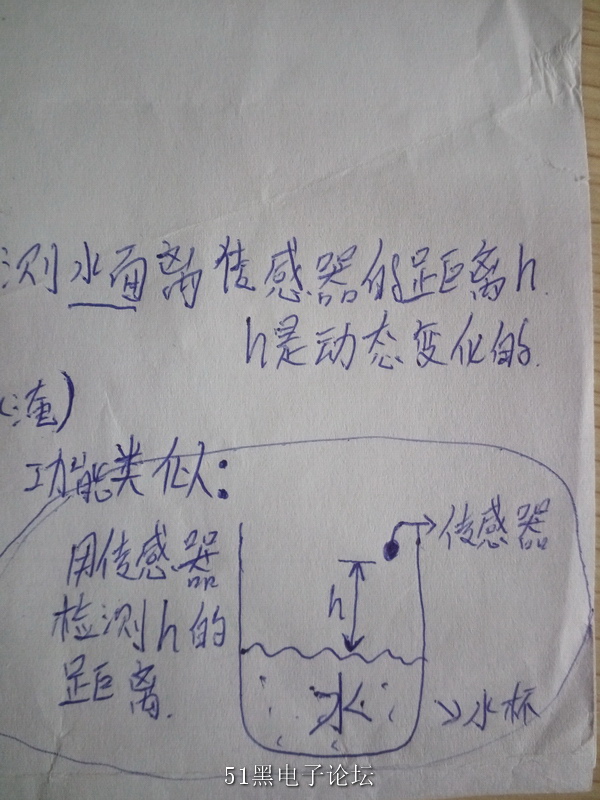 测水面离传感器的距离h.
h是动态变化的.
(淹)
功能类似:
用传感器
检测h的
距离.
传感器
h
水
水杯
51黑电子论坛